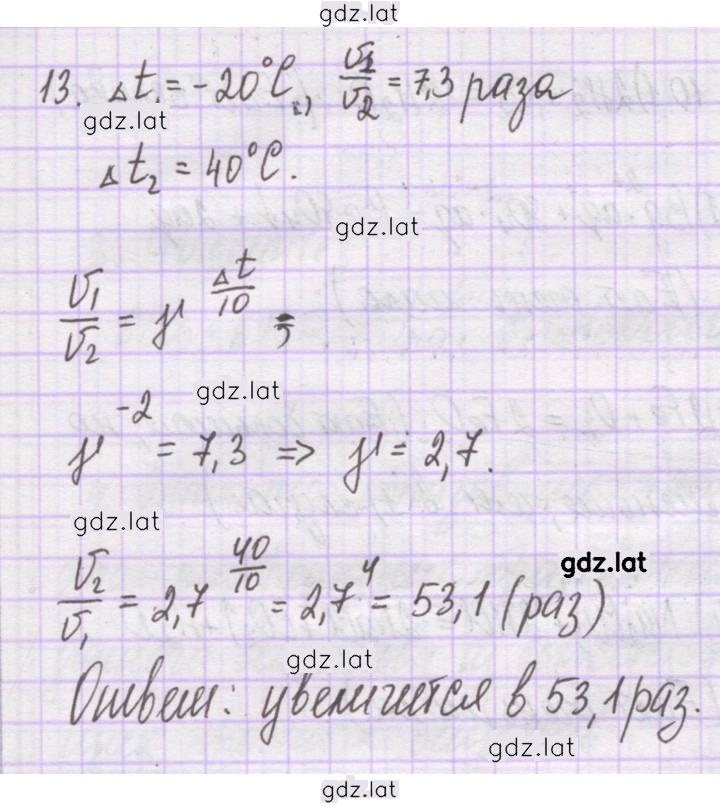 gdz.lat
13. Δt₁ = -20°C, V₁/V₂ = 7,3 раза
gdz.lat
Δt₂ = 40°C.
gdz.lat
V₁/V₂ = γ^(Δt/10);
gdz.lat
γ^(-2) = 7,3 => γ = 2,7.
gdz.lat
gdz.lat
V₂/V₁ = 2,7^(40/10) = 2,7^4 = 53,1 (раз)
gdz.lat
Ответ: увеличится в 53,1 раз.
gdz.lat
gdz.lat